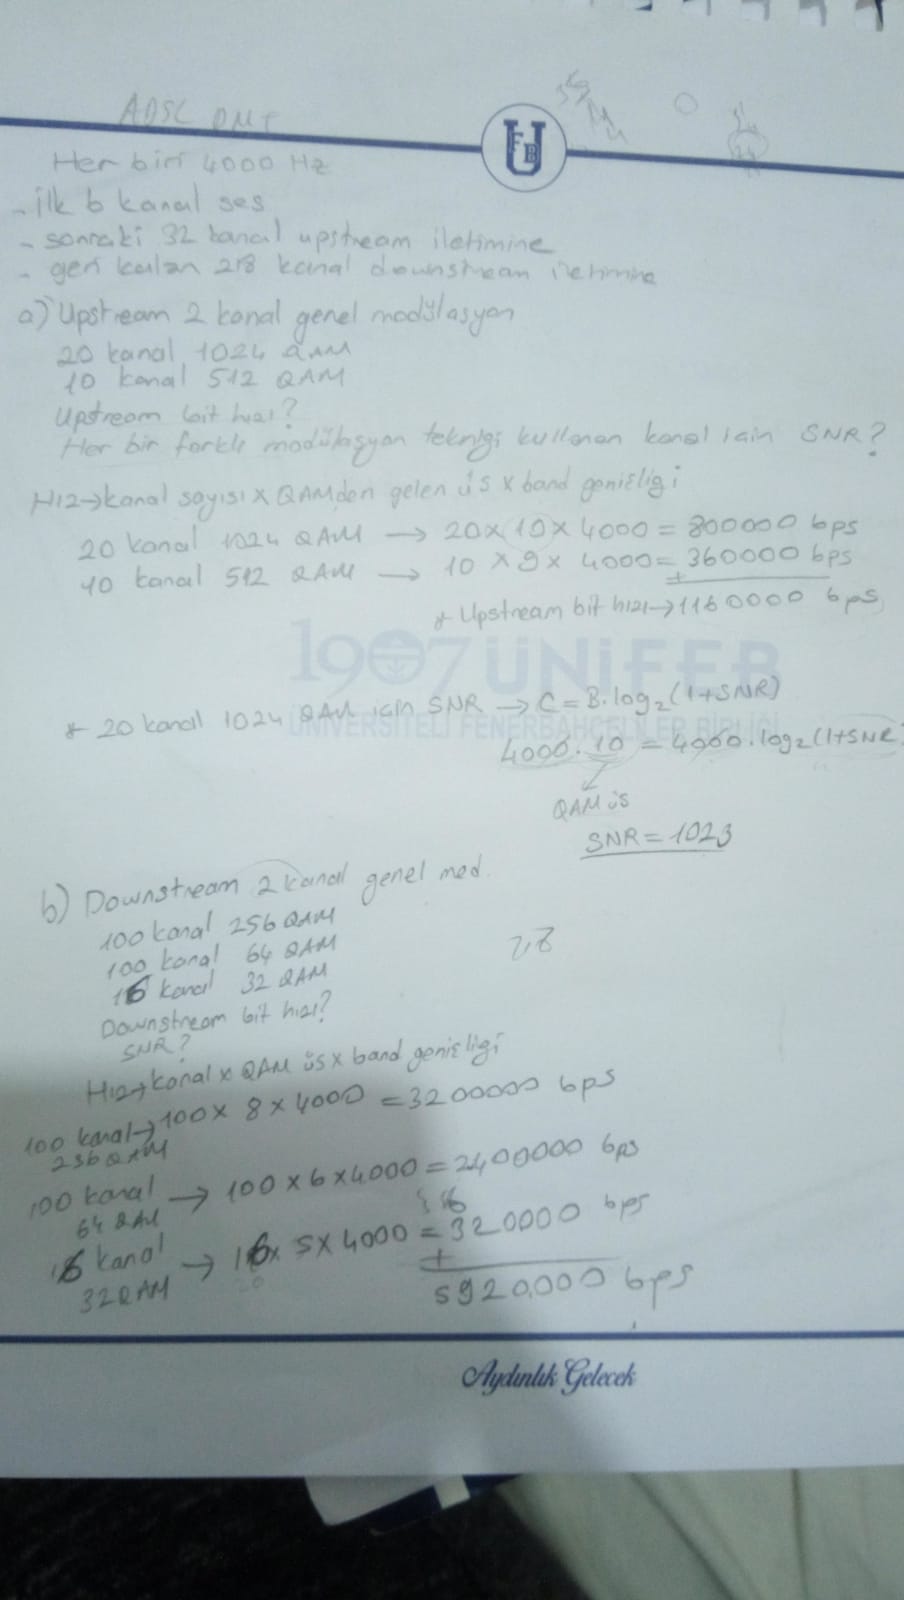 ADSL DMT
Her biri 4000 Hz
- ilk 6 kanal ses
- sonraki 32 kanal upstream iletimine
- geri kalan 218 kanal downstream iletimine
a) Upstream 2 kanal genel modülasyon
20 kanal 1024 QAM
10 kanal 512 QAM
Upstream bit hızı?
Her bir farklı modülasyon tekniği kullanan kanal için SNR?
Hız→kanal sayısı x QAMden gelen üs x band genişliği
20 kanal 1024 QAM → 20x10x4000 = 800000 bps
10 kanal 512 QAM → 10 x 9 x 4000 = 360000 bps
+
* Upstream bit hızı→1160000 bps
1907 ÜNİFEB
ÜNİVERSİTELİ FENERBAHÇELİLER BİRLİĞİ
* 20 kanal 1024 QAM için SNR → C = B.log₂(1+SNR)
4000.10 = 4000.log₂(1+SNR)
QAM üs
SNR = 1023
b) Downstream 2 kanal genel mod.
100 kanal 256 QAM
100 kanal 64 QAM
16 kanal 32 QAM
Downstream bit hızı?
SNR?
Hız→kanal x QAM üs x band genişliği
100 kanal→100 x 8 x 4000 = 3200000 bps
256 QAM
100 kanal → 100 x 6 x 4000 = 2400000 bps
64 QAM
16 kanal → 16x 5 x 4000 = 320000 bps
32 QAM
+
5920.000 bps
Aydınlık Gelecek